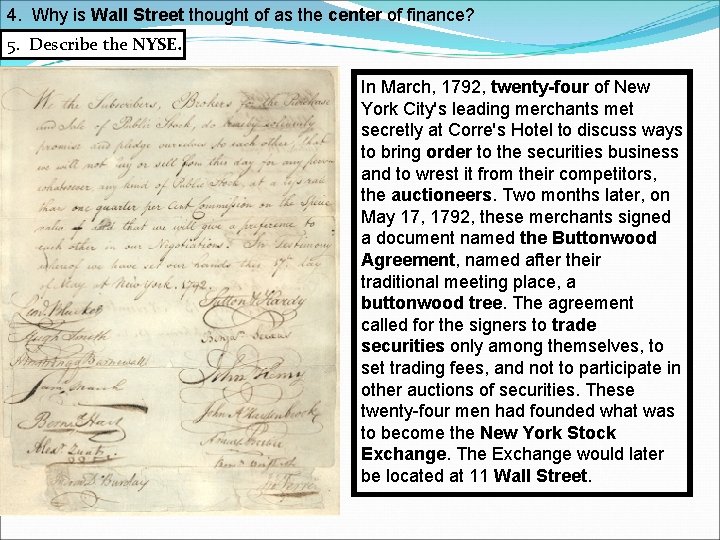 4. Why is Wall Street thought of as the center of finance?
5. Describe the NYSE.
We the Subscribers, Brokers for the Purchase
and Sale of Public Stock, do hereby solemnly
promise and pledge ourselves to each other, that
we will not buy or sell from this day for any person
whatsoever, any kind of Public Stock, at a less rate
than one quarter per Cent Commission on the Specie
value & and that we will give a preference to
each other in our Negotiations. In Testimony
whereof we have set our hands this 17th day
of May at New York. 1792.
Leon. Bleecker
Hugh Smith
Armstrong & Barnewall
Sam. March
Bernard Hart
Alex. Zuntz
Sutton & Hardy
Benjn. Seixas
John Henry
John A Hardenbrook
Amos Beebe
Benj.
In March, 1792, twenty-four of New
York City's leading merchants met
secretly at Corre's Hotel to discuss ways
to bring order to the securities business
and to wrest it from their competitors,
the auctioneers. Two months later, on
May 17, 1792, these merchants signed
a document named the Buttonwood
Agreement, named after their
traditional meeting place, a
buttonwood tree. The agreement
called for the signers to trade
securities only among themselves, to
set trading fees, and not to participate in
other auctions of securities. These
twenty-four men had founded what was
to become the New York Stock
Exchange. The Exchange would later
be located at 11 Wall Street.